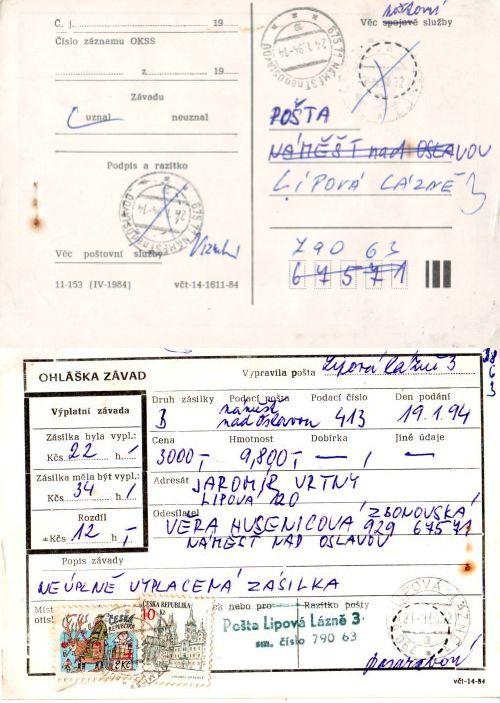 Č. j. 19
Číslo záznamu OKSS
z 19
Závadu
uznal neuznal
Podpis a razítko
675 71 NÁMĚŠŤ nad OSLAVOU
Věc poštovní služby
11-153 (IV-1984) včt-14-1611-84
poštovní
Věc spojové služby
675 71 NÁMĚŠŤ nad OSLAVOU
24.1.94-14
POŠTA
NÁMĚŠŤ nad OSLAVOU
LIPOVÁ LÁZNĚ 3
790 63
67571
OHLÁŠKA ZÁVAD Vypravila pošta Lipová Lázně 3
Výplatní závada
Zásilka byla vypl.:
Kčs 22 h
Zásilka měla být vypl.:
Kčs 34 h
Rozdíl
±Kčs 12 h
Druh zásilky Podací pošta Podací číslo Den podání
B Náměšť nad Oslavou 413 19.1.94
Cena Hmotnost Dobírka Jiné údaje
3000,- 9,800,- — —
Adresát JAROMÍR VRTNÝ
LIPOVÁ 120
Odesílatel ZBOŇOVSKÁ
VĚRA HUSENICOVÁ 929 67571
NÁMĚŠŤ NAD OSLAVOU
Popis závady
NEÚPLNĚ VYPLACENÁ ZÁSILKA
Razítko pošty
ČESKÁ REPUBLIKA
2 Kč
ČESKA REPUBLIKA
10 Kč
Pošta Lipová Lázně 3
sm. číslo 790 63
včt-14-84